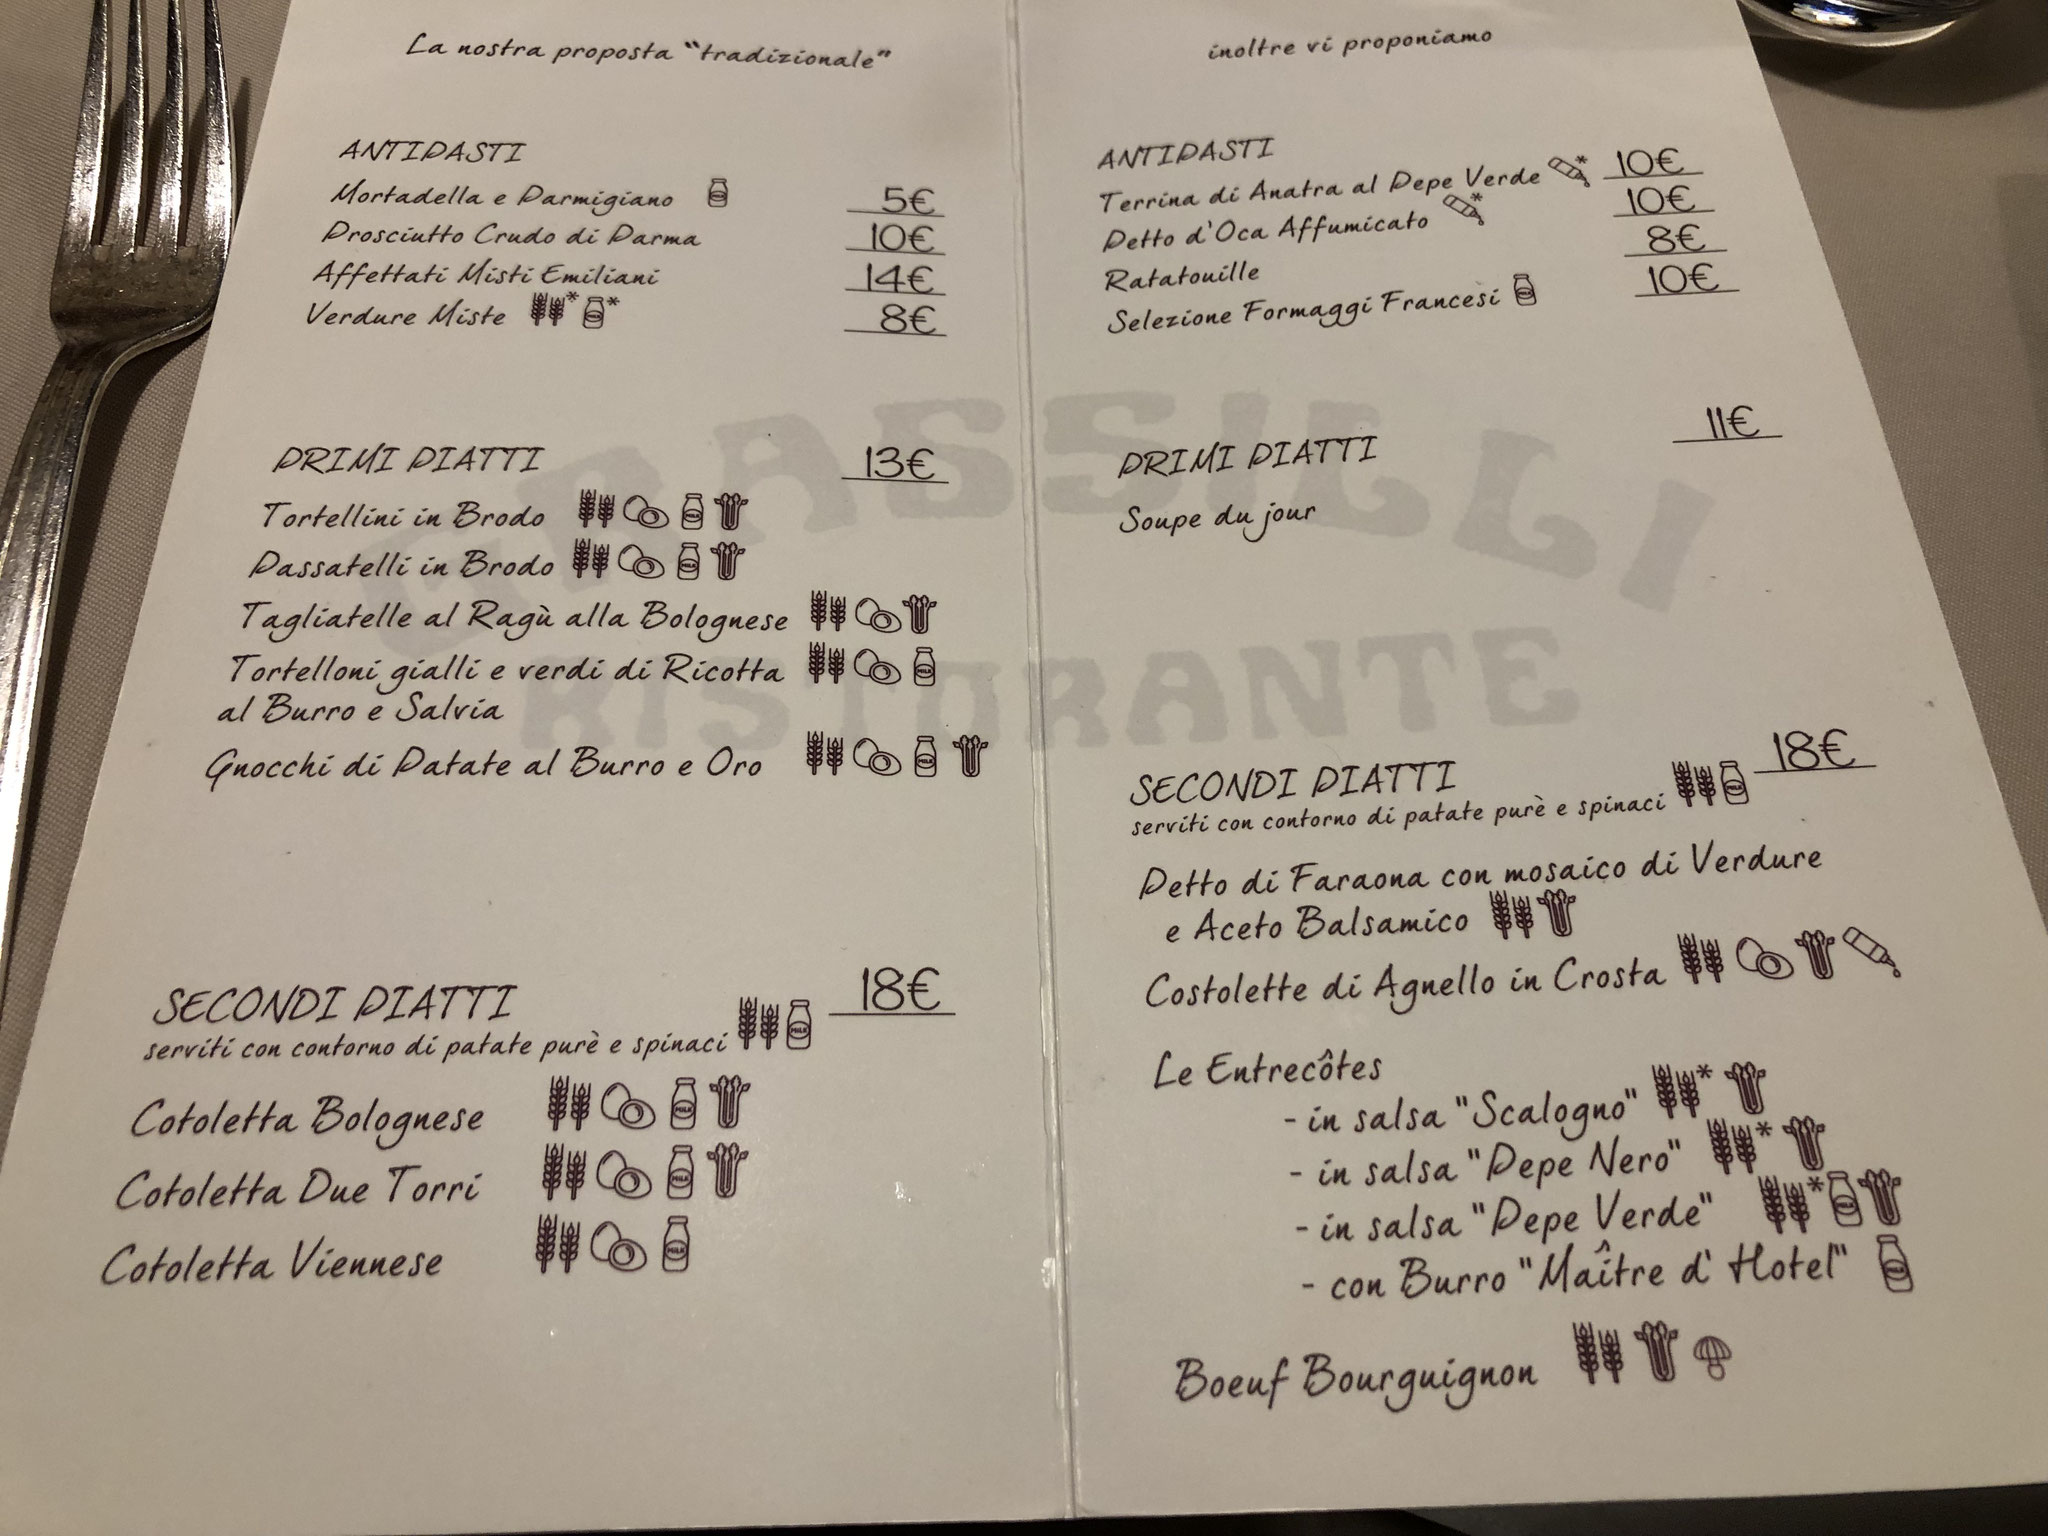 La nostra proposta "tradizionale"
ANTIPASTI
Mortadella e Parmigiano 5€
Prosciutto Crudo di Parma 10€
Affettati Misti Emiliani 14€
Verdure Miste ** 8€
PRIMI PIATTI 13€
Tortellini in Brodo MILK
Passatelli in Brodo MILK
Tagliatelle al Ragù alla Bolognese
Tortelloni gialli e verdi di Ricotta MILK
al Burro e Salvia
Gnocchi di Patate al Burro e Oro MILK
SECONDI PIATTI 18€
serviti con contorno di patate purè e spinaci MILK
Cotoletta Bolognese MILK
Cotoletta Due Torri MILK
Cotoletta Viennese MILK
inoltre vi proponiamo
ANTIPASTI
Terrina di Anatra al Pepe Verde * 10€
Petto d'Oca Affumicato * 10€
Ratatouille 8€
Selezione Formaggi Francesi MILK 10€
PRIMI PIATTI 11€
Soupe du jour
SECONDI PIATTI 18€
serviti con contorno di patate purè e spinaci MILK
Petto di Faraona con mosaico di Verdure
e Aceto Balsamico
Costolette di Agnello in Crosta
Le Entrecôtes
- in salsa "Scalogno" *
- in salsa "Pepe Nero" *
- in salsa "Pepe Verde" * MILK
- con Burro "Maître d' Hotel" MILK
Boeuf Bourguignon
GRASSILLI
RISTORANTE